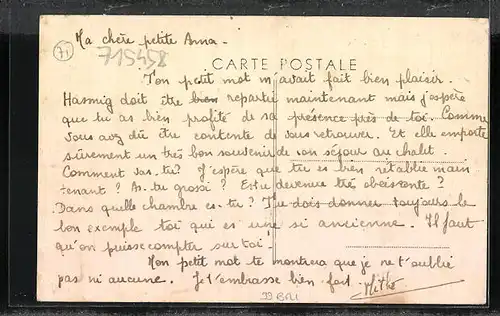 Ma chère petite Anna -
71
715458
CARTE POSTALE
Ton petit mot m'avait fait bien plaisir.
Hasmig doit être bien repartie maintenant mais j'espère
que tu as bien profité de sa présence près de toi. Comme
vous avez dû être contente de vous retrouver. Et elle emporte
sûrement un très bon souvenir de son séjour au chalet.
Comment vas-tu? J'espère que tu es bien rétablie main
tenant? As-tu grossi? Es-tu devenue très obéissante?
Dans quelle chambre es-tu? Tu dois donner toujours le
bon exemple toi qui es une si ancienne. Il faut
qu'on puisse compter sur toi.
Mon petit mot te montrera que je ne t'oublie
pas ni aucune. Je t'embrasse bien fort.